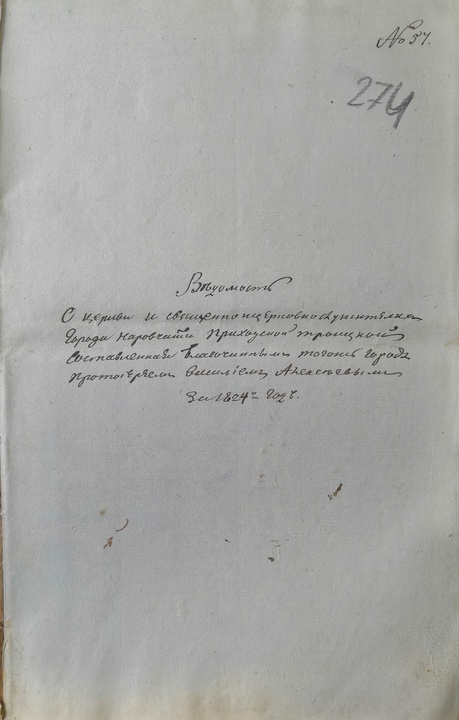 № 57.
274
Вѣдомость
О церкви и священноцерковнослужителяхъ
Города Наровчата Приходской троицкой
Составленная благочиннымъ тогожъ города
протоіереемъ Василіемъ Алексѣевымъ
За 1824й Годъ.